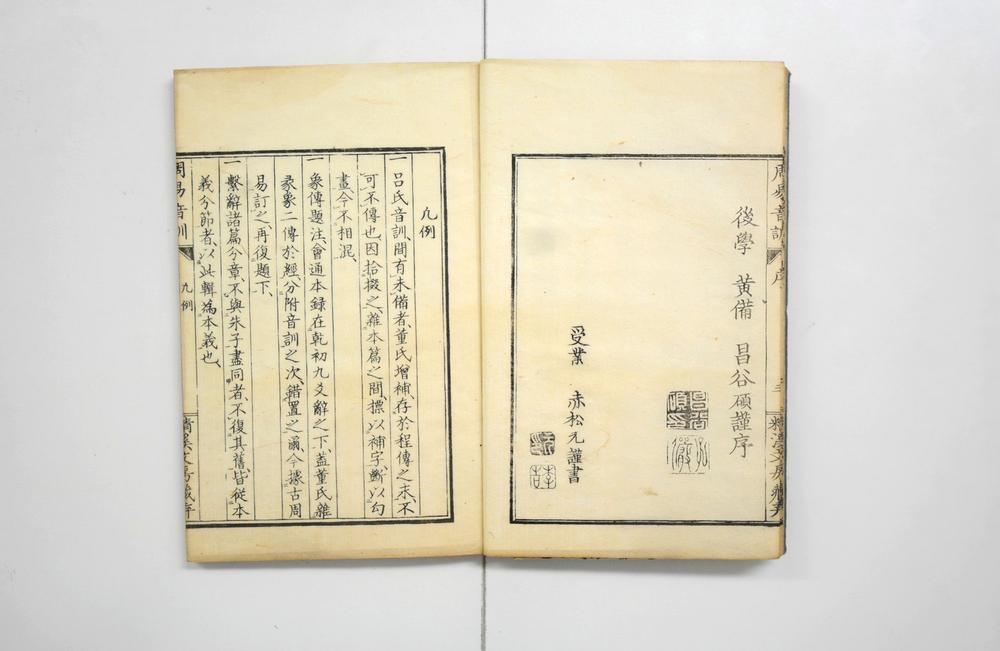 後學　黃備　昌谷碩謹序
受業　赤松元謹書
周易音訓
序
凡例
一 呂氏音訓、間有未備者、董氏增補、存於程傳之末、不
可不傳也、因拾掇之、雜本篇之間、標以補字、斷以勾
畫、今不相混、
一 象傳題注、會通本錄在乾初九爻辭之下、蓋董氏雜
彖象二傳於經、分附音訓之次、錯置之爾、今據古周
易訂之、再復題下、
一 繫辭諸篇分章、不與朱子盡同者、不復其舊、皆從本
義分節者、以此輯為本義也、
周易音訓
凡例